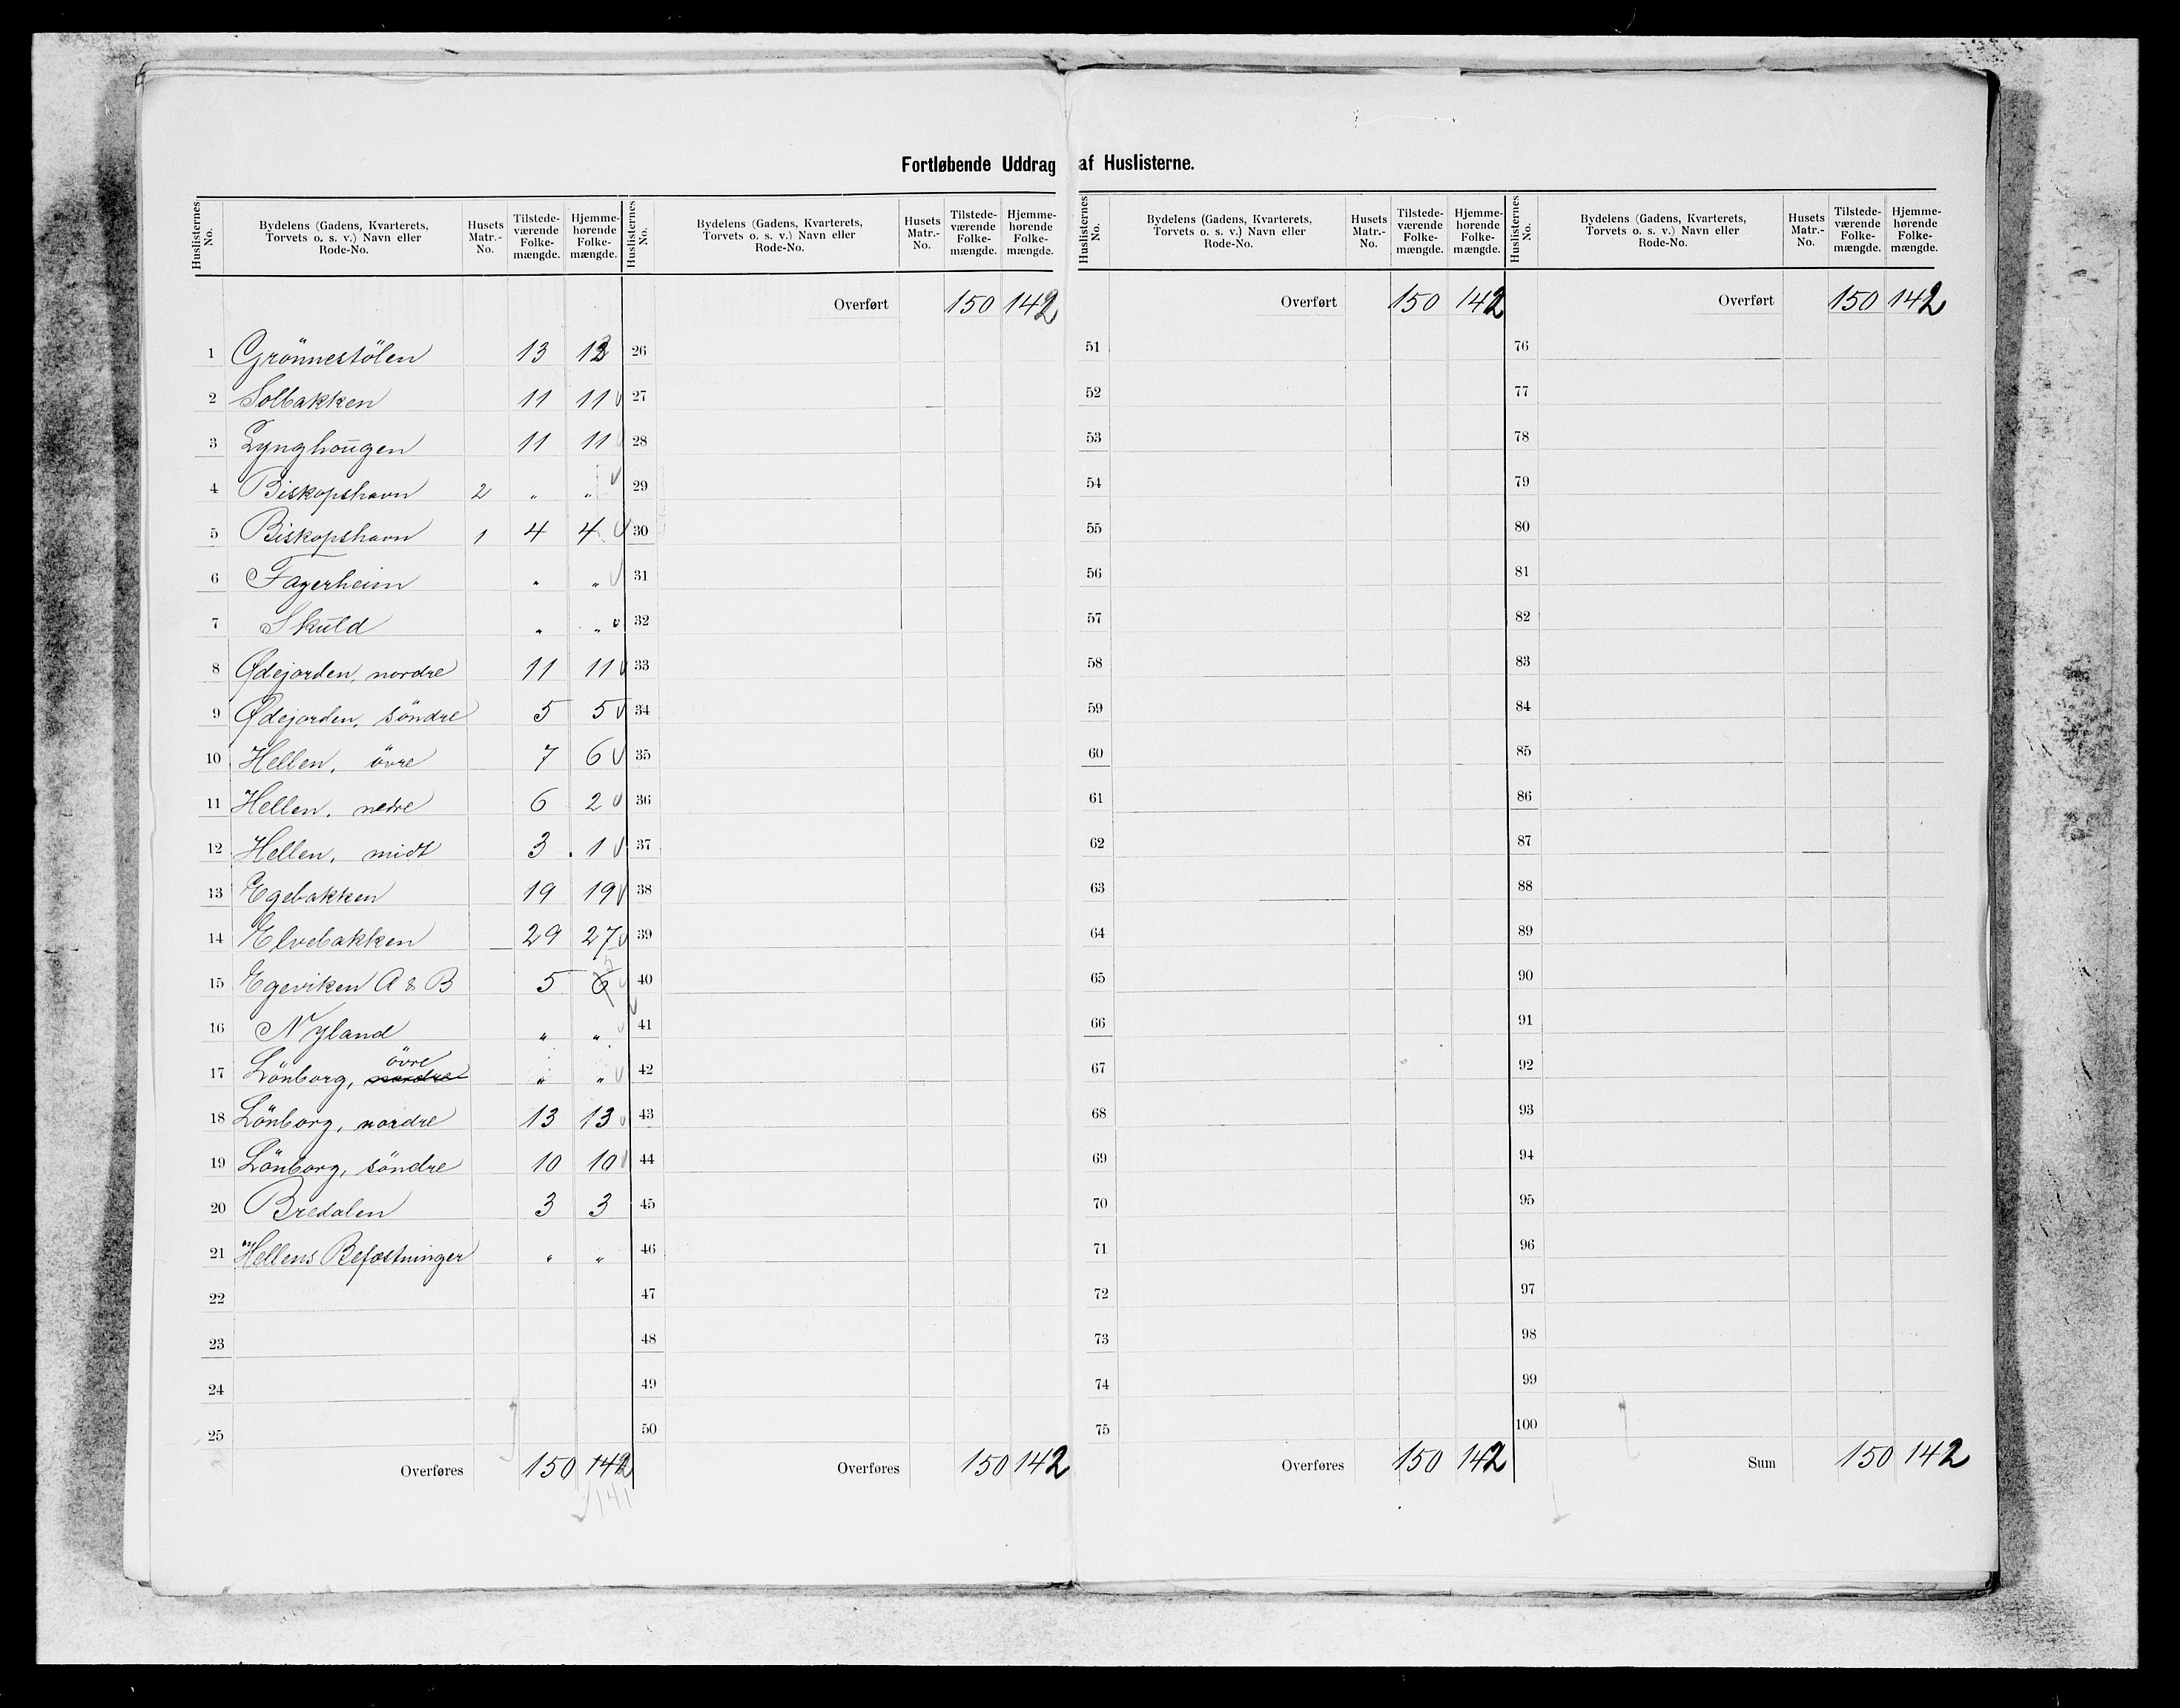 Fortløbende Uddrag af Huslisterne.
Huslisternes No. | Bydelens (Gadens, Kvarterets, Torvets o. s. v.) Navn eller Rode-No. | Husets Matr.-No. | Tilstede-værende Folke-mængde. | Hjemme-hørende Folke-mængde. | Huslisternes No. | Bydelens (Gadens, Kvarterets, Torvets o. s. v.) Navn eller Rode-No. | Husets Matr.-No. | Tilstede-værende Folke-mængde. | Hjemme-hørende Folke-mængde. | Huslisternes No. | Bydelens (Gadens, Kvarterets, Torvets o. s. v.) Navn eller Rode-No. | Husets Matr.-No. | Tilstede-værende Folke-mængde. | Hjemme-hørende Folke-mængde. | Huslisternes No. | Bydelens (Gadens, Kvarterets, Torvets o. s. v.) Navn eller Rode-No. | Husets Matr.-No. | Tilstede-værende Folke-mængde. | Hjemme-hørende Folke-mængde.
Overført 150 142 Overført 150 142 Overført 150 142
1 Grönnestölen 13 12 26 51 76
2 Solbakken 11 11 √ 27 52 77
3 Lynghougen 11 11 √ 28 53 78
4 Biskopshavn 2 " " √ 29 54 79
5 Biskopshavn 1 4 4 √ 30 55 80
6 Fagerheim " " √ 31 56 81
7 Skuld " " √ 32 57 82
8 Ødejorden, nordre 11 11 √ 33 58 83
9 Ødejorden, söndre 5 5 √ 34 59 84
10 Hellen, övre 7 6 √ 35 60 85
11 Hellen, nedre 6 2 √ 36 61 86
12 Hellen, midt 3 1 √ 37 62 87
13 Egebakken 19 19 √ 38 63 88
14 Elvebakken 29 27 √ 39 64 89
15 Egeviken A & B 5 6 √ 40 65 90
16 Nyland " " √ 41 66 91
17 Lönborg, nordre övre " " √ 42 67 92
18 Lönborg, nordre 13 13 √ 43 68 93
19 Lönborg, söndre 10 10 √ 44 69 94
20 Bredalen 3 3 45 70 95
21 Hellens Befæstninger " " 46 71 96
22 47 72 97
23 48 73 98
24 49 74 99
25 50 75 100
Overføres 150 142 Overføres 150 142 Overføres 150 142 Sum 150 142
√ 141